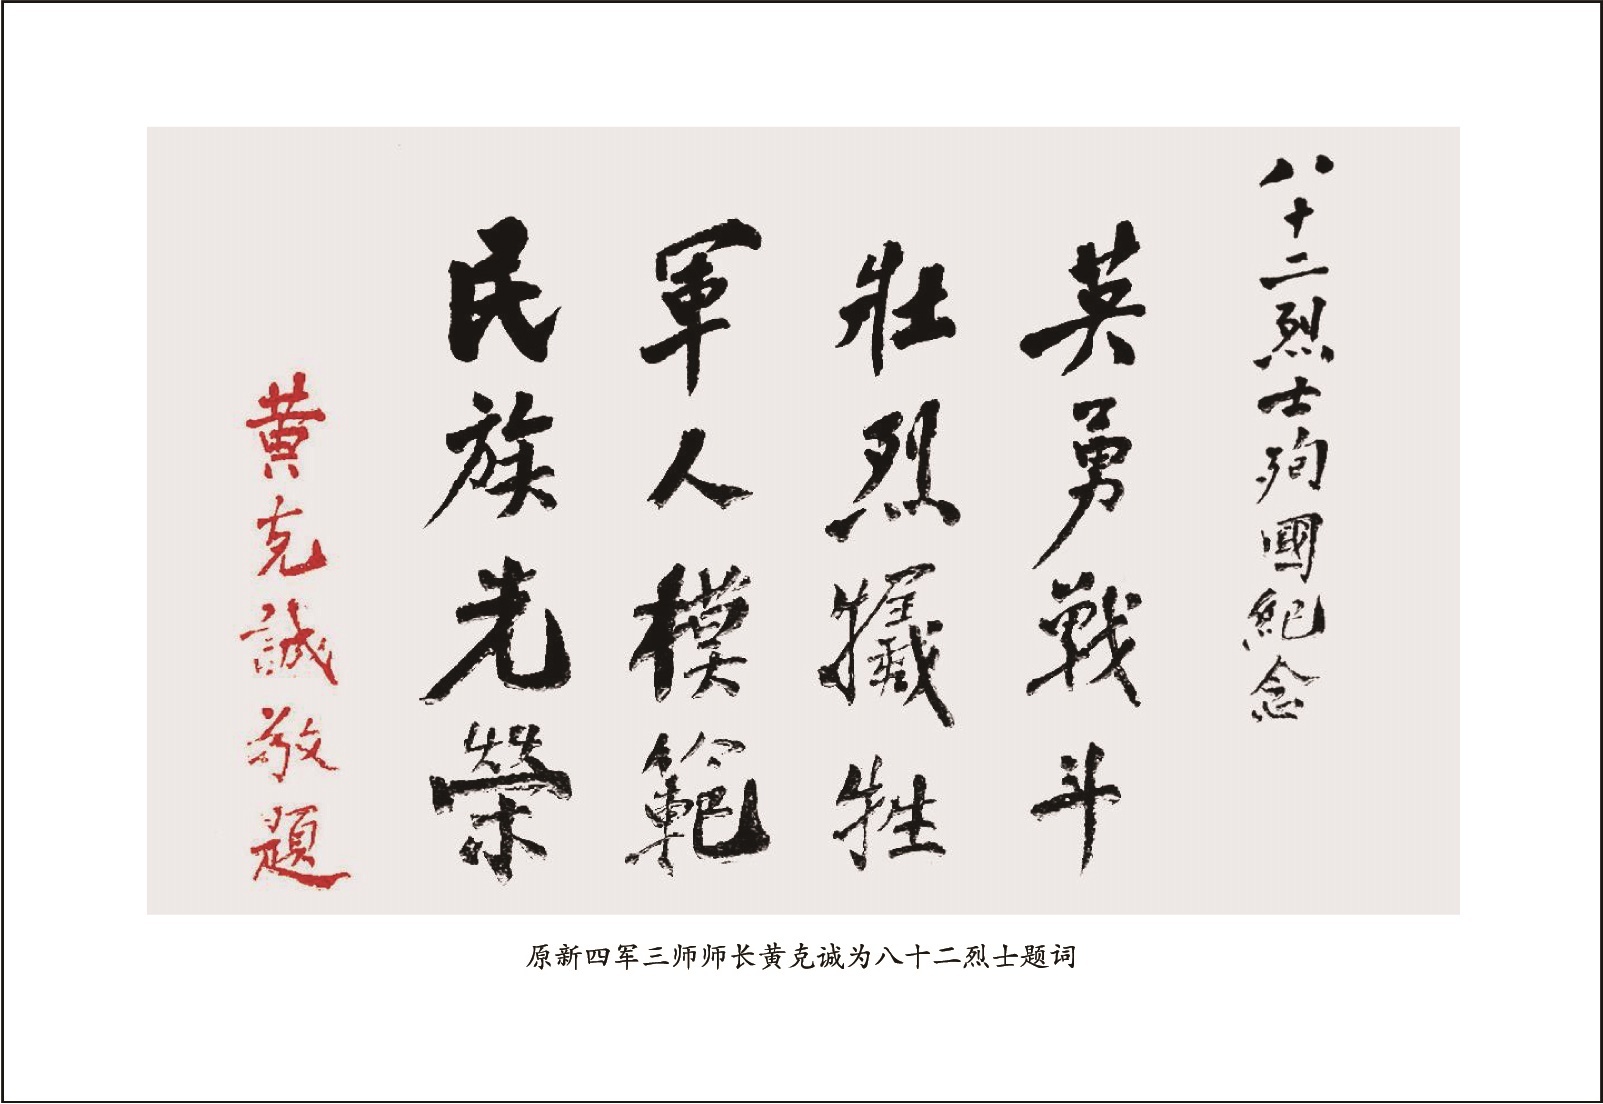 八十二烈士殉國紀念
英勇戰斗
壯烈犧牲
軍人模範
民族光榮
黄克誠敬題
原新四军三师师长黄克诚为八十二烈士题词